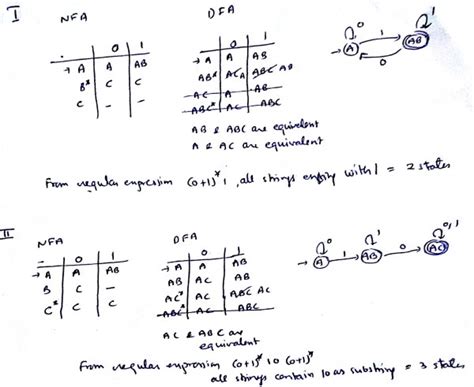 I
NFA
DFA
0 1
→A A AB
B* C C
C - -
0 1
→A A AB
AB* AC A ABC AB
AC A AB
ABC* AC ABC
0 1
A 1 AB
0
AB & ABC are equivelent
A & AC are equivalent
From regular expression (0+1)* 1, all strings ending with 1 = 2 states
II
NFA
DFA
0 1
→A A AB
B C -
C* C C
0 1
→A A AB
AB AC AB
AC* AC ABC AC
ABC* AC ABC
0 1 0,1
→A 1 AB 0 AC
AC & ABC are
equivalent
From regular expression (0+1)* 10 (0+1)*
all strings contain 10 as substring = 3 states